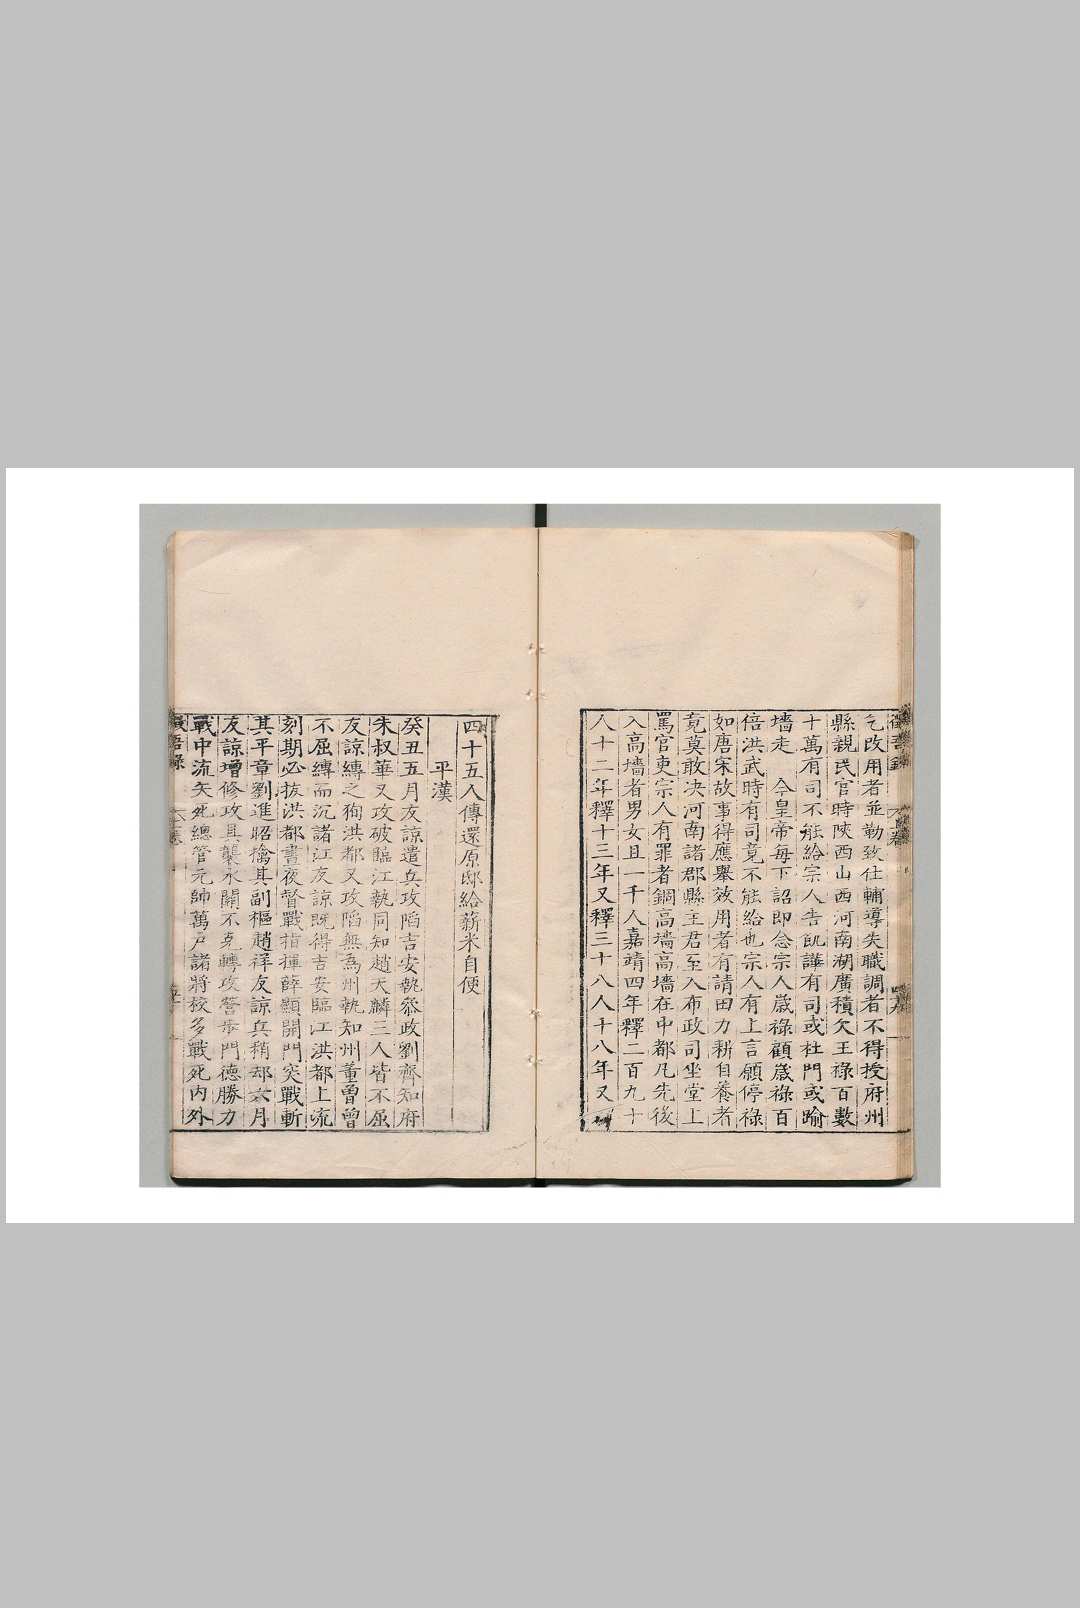 乞改用者並勒致仕輔導失職調者不得授府州
縣親民官時陝西山西河南湖廣積欠王祿百數
十萬有司不能給宗人告飢譁有司或杜門或踰
墻走　今皇帝每下詔即念宗人歲祿顧歲祿百
倍洪武時有司竟不能給也宗人有上言願停祿
如唐宋故事得應舉效用者有請田力耕自養者
竟莫敢决河南諸郡縣主君至入布政司坐堂上
罵官吏宗人有罪者錮高墻高墻在中都凡先後
入高墻者男女且一千人嘉靖四年釋二百九十
八十二年釋十三年又釋三十八人十八年又
四十五人傳還原邸給薪米自便
平漢
癸丑五月友諒遣兵攻陷吉安執叅政劉齊知府
朱叔華又攻破臨江執同知趙天麟三人皆不屈
友諒縛之狥洪都又攻陷無為州執知州董曾曾
不屈縛而沉諸江友諒既得吉安臨江洪都上流
刻期必拔洪都晝夜督戰指揮薛顯開門突戰斬
其平章劉進昭擒其副樞趙祥友諒兵稍却六月
友諒增修攻具襲水關不克轉攻營步門德勝力
戰中流矢死總管元帥萬戶諸將校多戰死内外